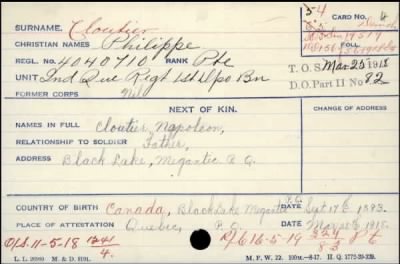 SURNAME. Cloutier
CARD NO.
CHRISTIAN NAMES Philippe
REGL. NO. 4040710 RANK Pte
FOLL.
UNIT 2nd Que Regt 1st Dpo Bn
T. O. S. Mar 25 1918
D.O. Part II No 82
FORMER CORPS Nil
NEXT OF KIN.
CHANGE OF ADDRESS
NAMES IN FULL Cloutier Napoleon,
RELATIONSHIP TO SOLDIER Father,
ADDRESS Black Lake, Megantic P. Q.
COUNTRY OF BIRTH Canada, Black Lake Megantic P.Q. DATE Sept 17th 1893.
PLACE OF ATTESTATION Quebec, P.Q. DATE 1918.
O/S. 11-5-18
R/C 16-5-19
L. L. M. & D.
M. F. W. 22.